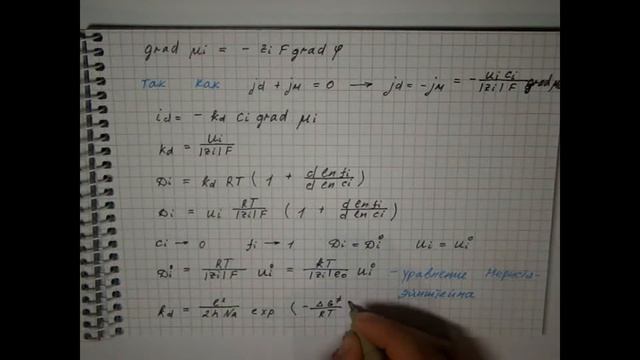 grad μi = - zi F grad φ
так как jd + jм = 0 → jd = -jм = - ui ci / |zi| F grad μi
id = - kd ci grad μi
kd = ui / |zi| F
Di = kd RT ( 1 + d ln fi / d ln ci )
Di = ui RT / |zi| F ( 1 + d ln fi / d ln ci )
ci → 0 fi → 1 Di = Di° ui = ui°
Di° = RT / |zi| F ui° = kT / |zi| e0 ui° - уравнение Нернста-
Эйнштейна
kd = e² / 2h NA exp ( - ΔG≠ / RT